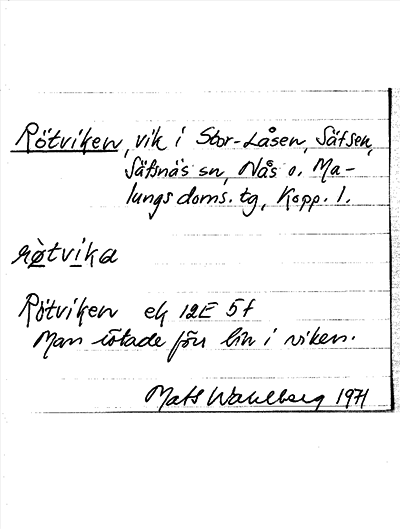 Rötviken, vik i Stor-Låsen, Säfsen,
Säfsnäs sn, Nås o. Ma-
lungs doms. tg, Kopp. l.
rö̀tvika
Rötviken ek 12E 5f
Man rötade förr lin i viken.
Mats Wahlberg 1971